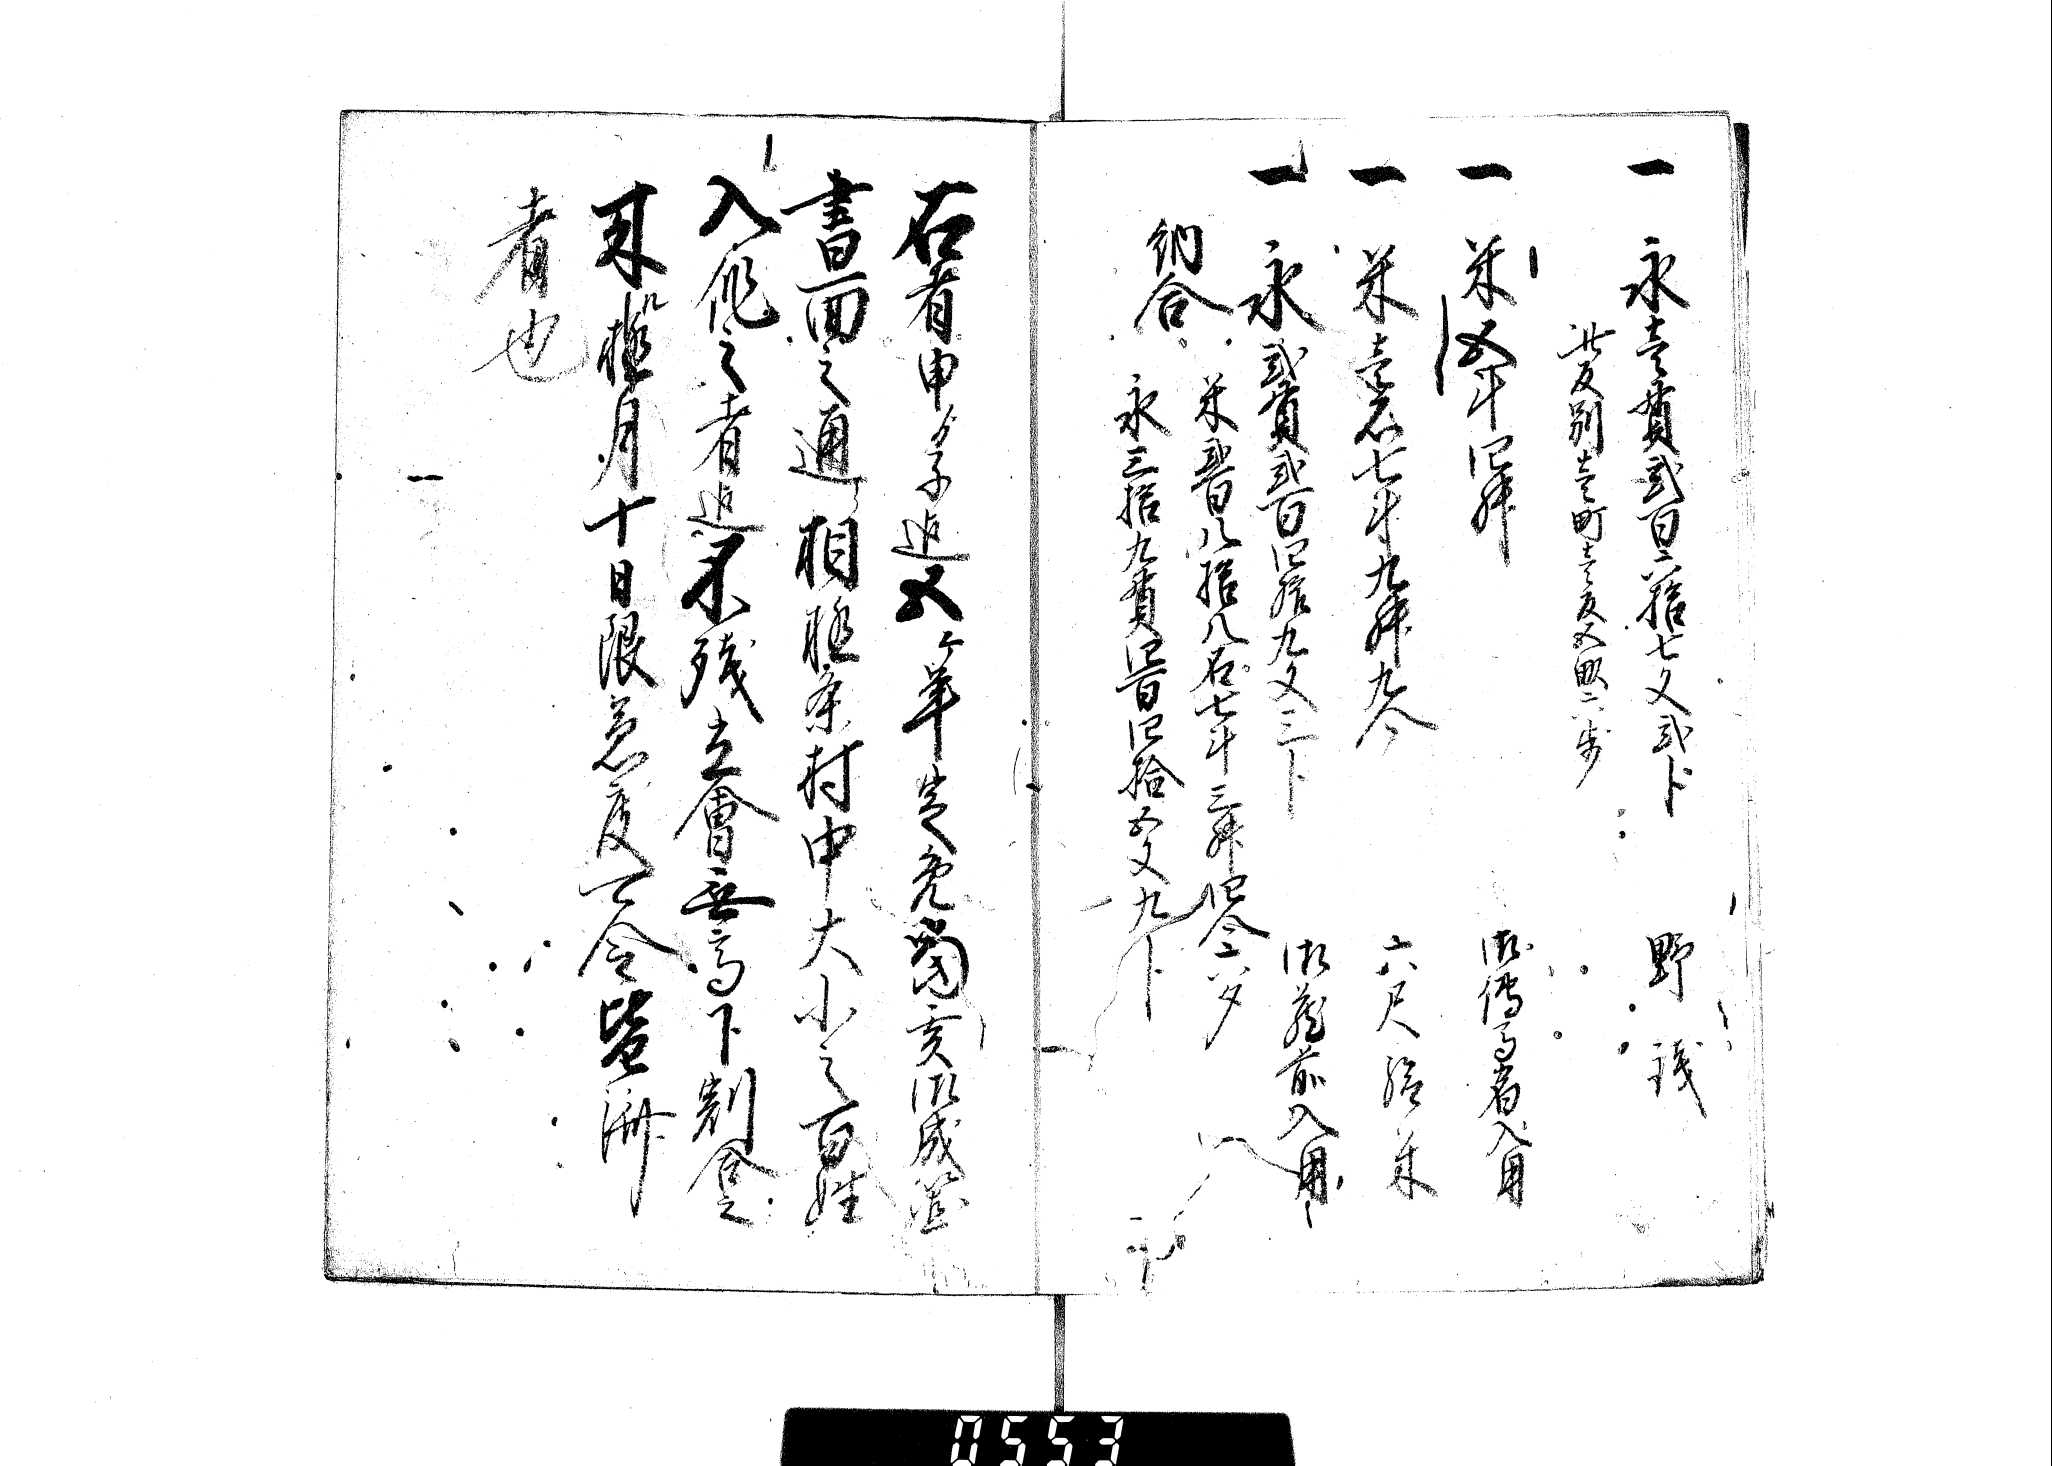 一 永壱貫弐百六拾七文弐卜 野銭
此反別壱町壱反五畝六歩
一 米五斗四升 御伝馬宿入用
一 米壱石七斗九升九合 六尺給米
一 永弐貫弐百四拾九文三卜 御蔵前入用
納合
米弐百八拾八石七斗三升四合六夕
永三拾九貫四百四拾五文九卜
右者申ゟ子迄五ヶ年定免当亥御成箇
書面之通相極条村中大小之百姓
入作之者迄不残立会無高下割合之
来極月十日限急度可令皆済
者也
0553